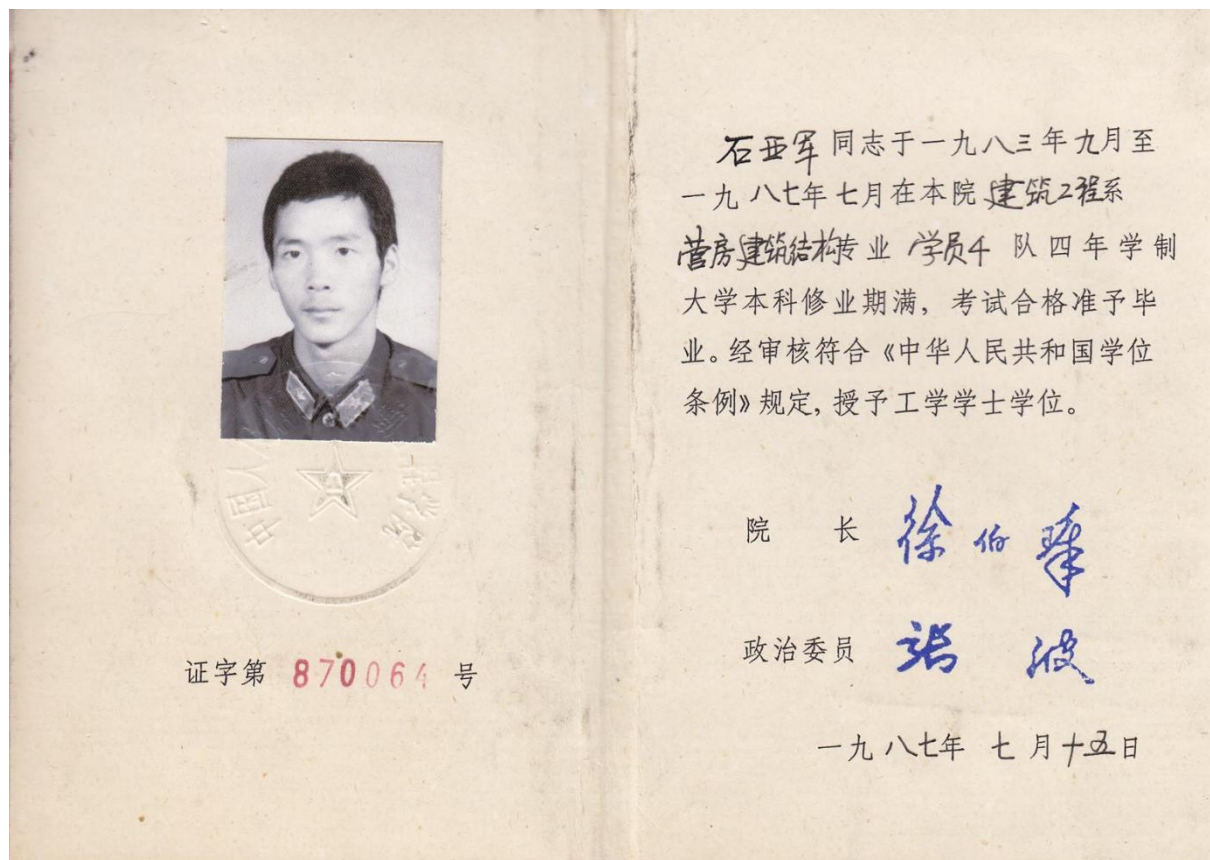 中国人
学院
证字第 870064 号
石亚军同志于一九八三年九月至
一九八七年七月在本院建筑工程系
营房建筑结构专业 学员十 队四年学制
大学本科修业期满，考试合格准予毕
业。经审核符合《中华人民共和国学位
条例》规定，授予工学学士学位。
院 长 徐伯
政治委员 张波
一九八七年 七月十五日